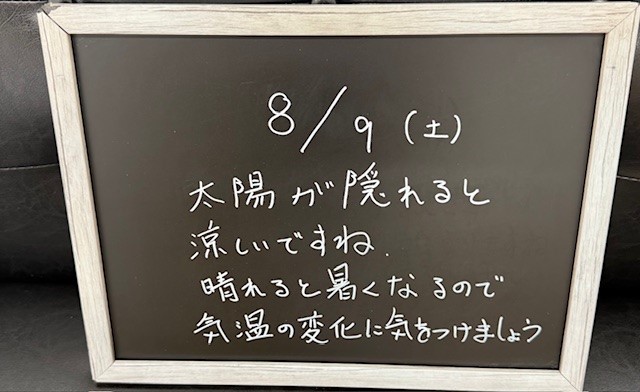 8/9(土)
太陽が隠れると
涼しいですね.
晴れると暑くなるので
気温の変化に気をつけましょう